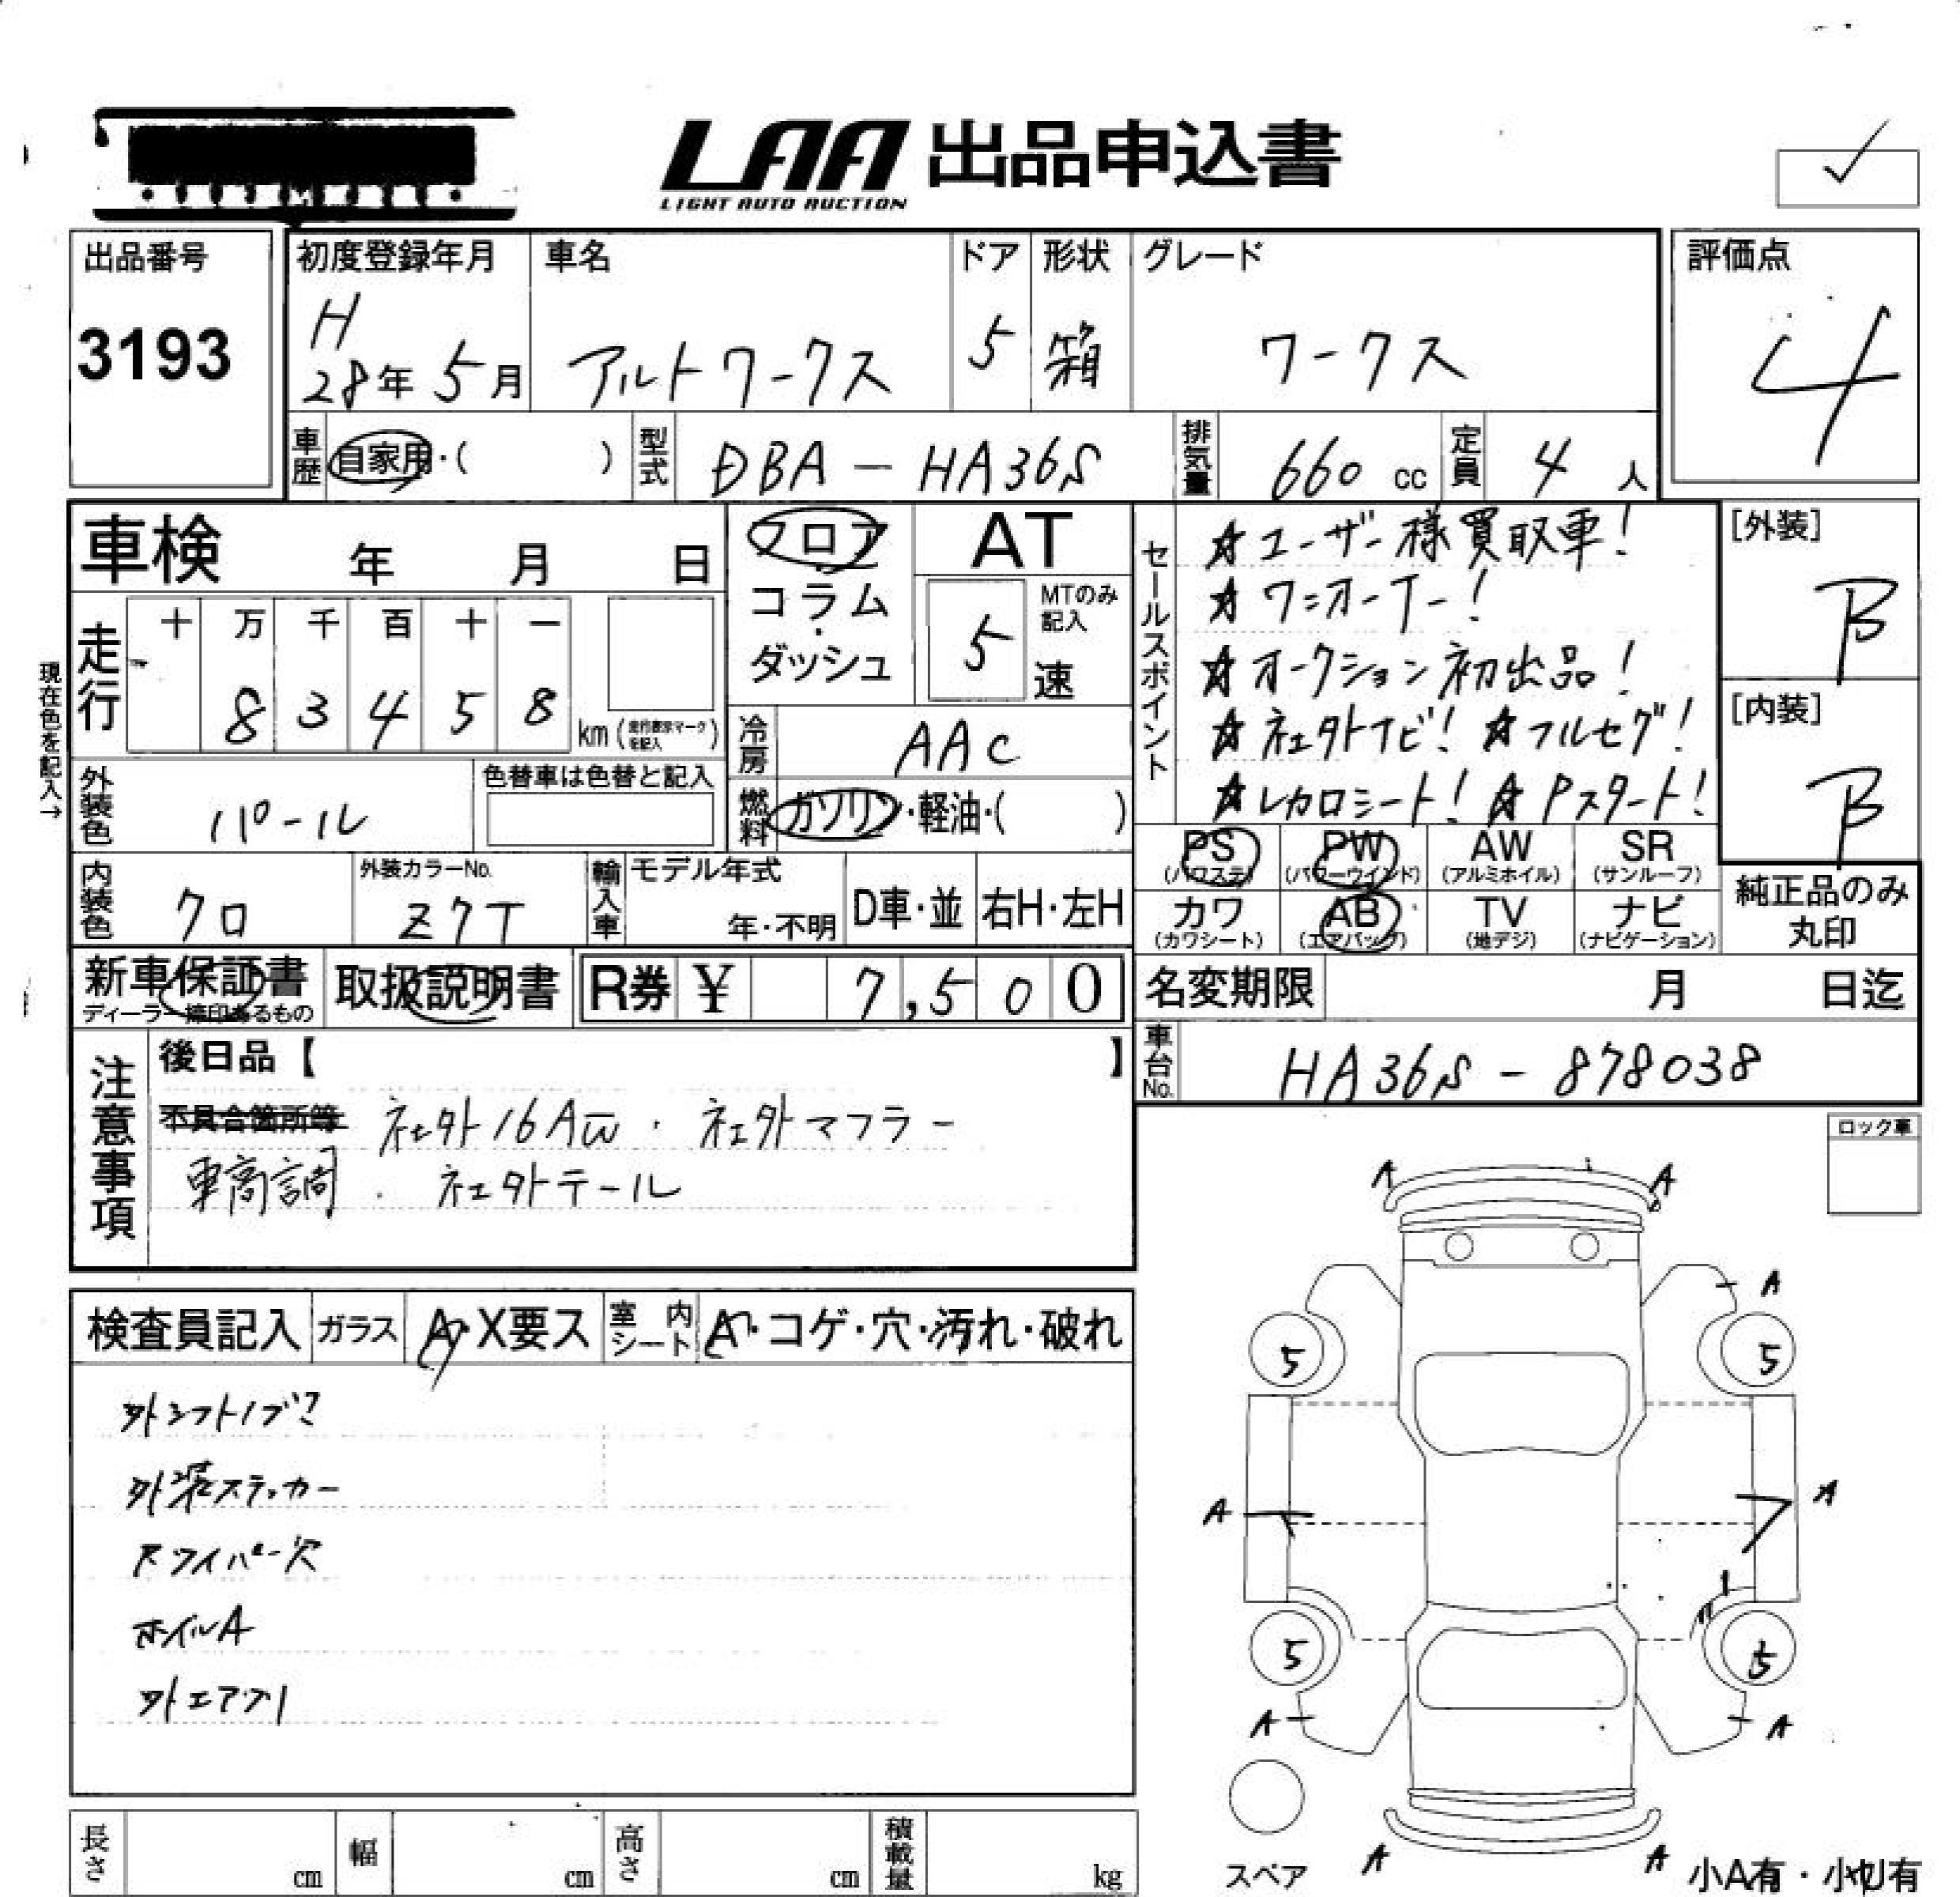 LAA 出品申込書
LIGHT AUTO AUCTION
出品番号
3193
初度登録年月
H
28年 5月
車名
アルトワークス
ドア
5
形状
箱
グレード
ワークス
評価点
4
車歴
自家用・( )
型式
DBA-HA36S
排気量
660 cc
定員
4 人
車検 年 月 日
走行
十 万 千 百 十 一
8 3 4 5 8
km(走行表示マークを記入)
現在色を記入→
外装色
パール
色替車は色替と記入
内装色
クロ
外装カラーNo.
Z7T
輸入車
モデル年式
年・不明
D車・並
右H・左H
フロア
コラム
・
ダッシュ
AT
5
MTのみ
記入
速
冷房
AAC
燃料
ガソリン・軽油・( )
セールスポイント
☆ユーザー様買取車!
☆ワンオーナー!
☆オークション初出品!
☆社外ナビ!☆フルセグ!
☆レカロシート!☆Pスタート!
[外装]
B
[内装]
B
PS
(パワステ)
PW
(パワーウインド)
AW
(アルミホイル)
SR
(サンルーフ)
カワ
(カワシート)
AB
(エアバッグ)
TV
(地デジ)
ナビ
(ナビゲーション)
純正品のみ
丸印
新車保証書
ディーラー捺印あるもの
取扱説明書
R券 ¥ 7,500
名変期限 月 日迄
車台No.
HA36S-878038
注意事項
後日品【 】
不具合箇所等 社外16AW・社外マフラー
車高調・社外テール
ロック車
検査員記入
ガラス
A・X要ス
室内
シート
A・コゲ・穴・汚れ・破れ
外シフトノブ
外装ステッカー
Rワイパー穴
ホイルA
外エアクリ
A A
A
5 5
A A
5 5
A A
スペア
A A
小A有・小U有
長さ cm
幅 cm
高さ cm
積載量 kg